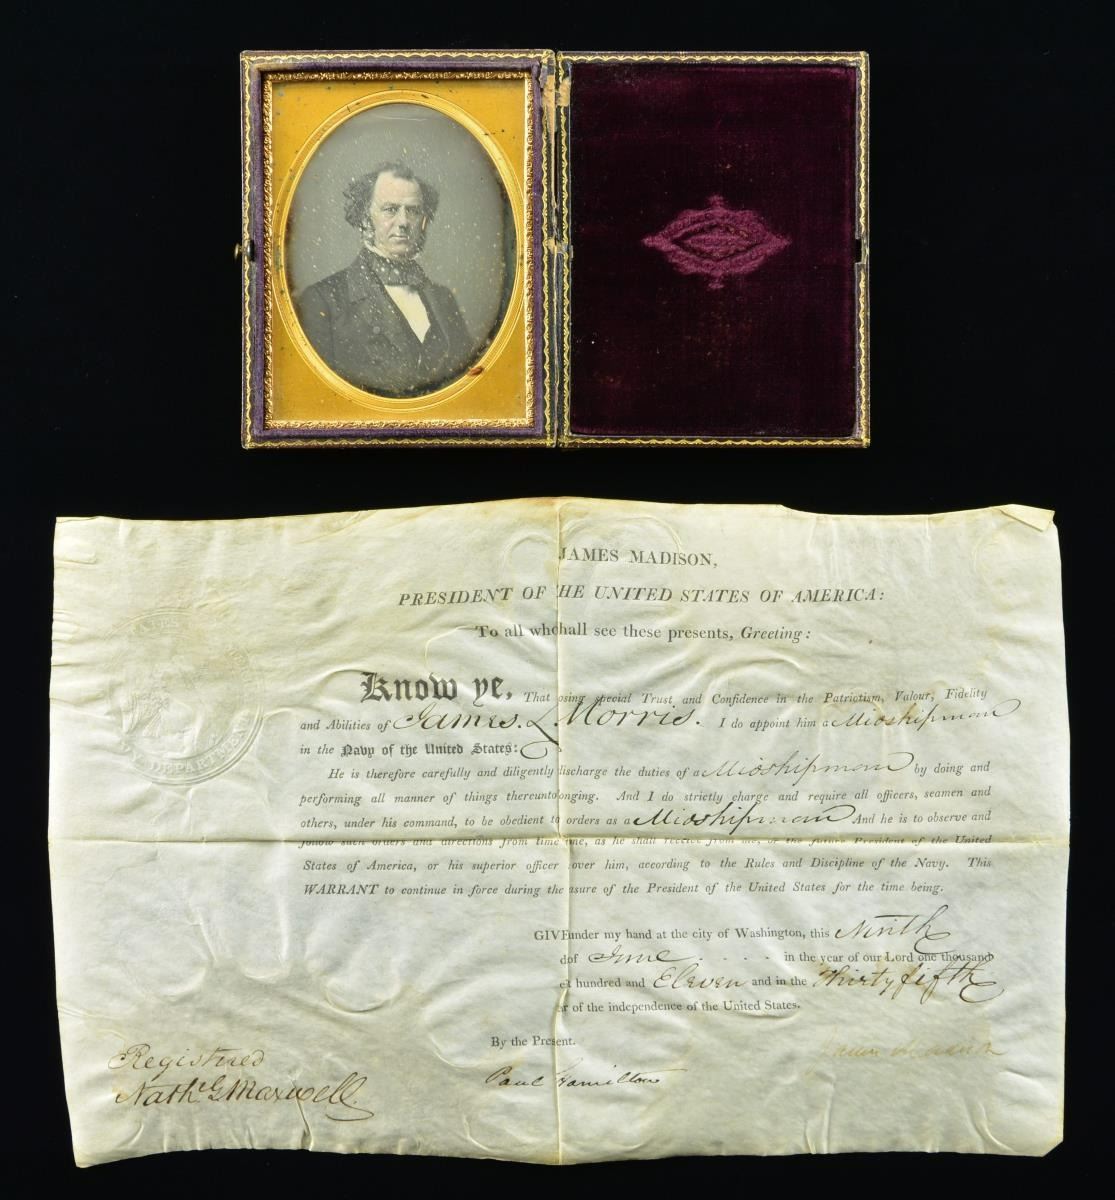 JAMES MADISON,
PRESIDENT OF HE UNITED STATES OF AMERICA:
To all who hall see these presents, Greeting:
Know ye, That osing special Trust and Confidence in the Patriotism, Valour, Fidelity
and Abilities of James. L Morris. I do appoint him a Midshipman
in the Navy of the United States:
He is therefore carefully and diligently discharge the duties of a Midshipman by doing and
performing all manner of things thereunto onging. And I do strictly charge and require all officers, seamen and
others, under his command, to be obedient to orders as a Midshipman And he is to observe and
follow such orders and directions from time me, as he shall receive from me, or the future President of the United
States of America, or his superior officer over him, according to the Rules and Discipline of the Navy. This
WARRANT to continue in force during the asure of the President of the United States for the time being.
GIVE under my hand at the city of Washington, this Ninth
d of June . . . . in the year of our Lord one thousand
e t hundred and Eleven and in the Thirty fifth
ar of the independence of the United States.
By the Present.
James Madison
Registered
Paul Hamilton
Nath G Maxwell
DEPARTMEN